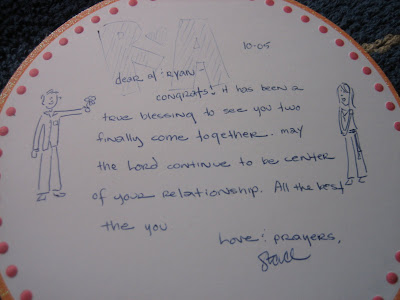 R+A
10-05
dear al : ryan -
congrats! it has been a
true blessing to see you two
finally come together. may
the Lord continue to be center
of your relationship. All the best
the you
Love : prayers,